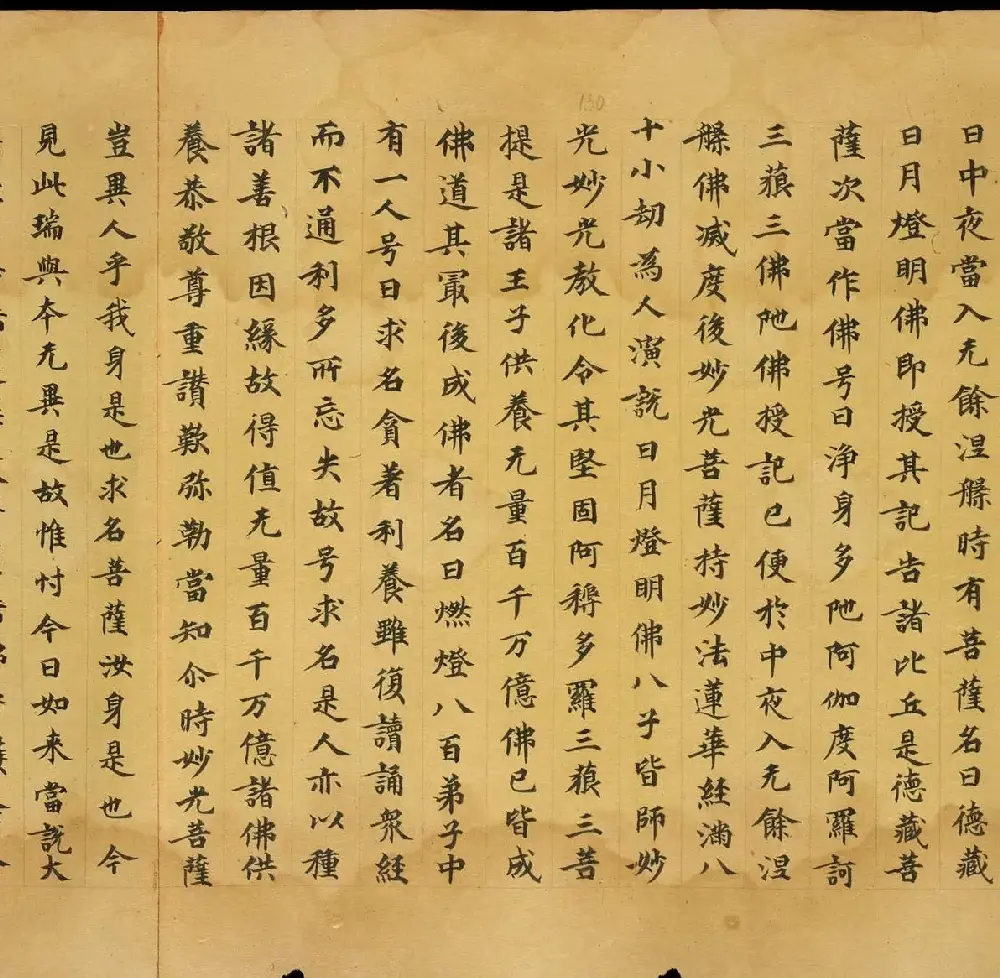 日中夜當入无餘涅槃時有菩薩名曰德藏
日月燈明佛即授其記告諸比丘是德藏菩
薩次當作佛号曰淨身多陁阿伽度阿羅訶
三藐三佛陁佛授記已便於中夜入无餘涅
槃佛滅度後妙光菩薩持妙法蓮華經滿八
十小劫為人演說日月燈明佛八子皆師妙
光妙光教化令其堅固阿耨多羅三藐三菩
提是諸王子供養无量百千万億佛已皆成
佛道其㝡後成佛者名曰燃燈八百弟子中
有一人号曰求名貪著利養雖復讀誦衆經
而不通利多所忘失故号求名是人亦以種
諸善根因緣故得值无量百千万億諸佛供
養恭敬尊重讚歎弥勒當知尒時妙光菩薩
豈異人乎我身是也求名菩薩汝身是也今
見此瑞與本无異是故惟忖今日如来當說大